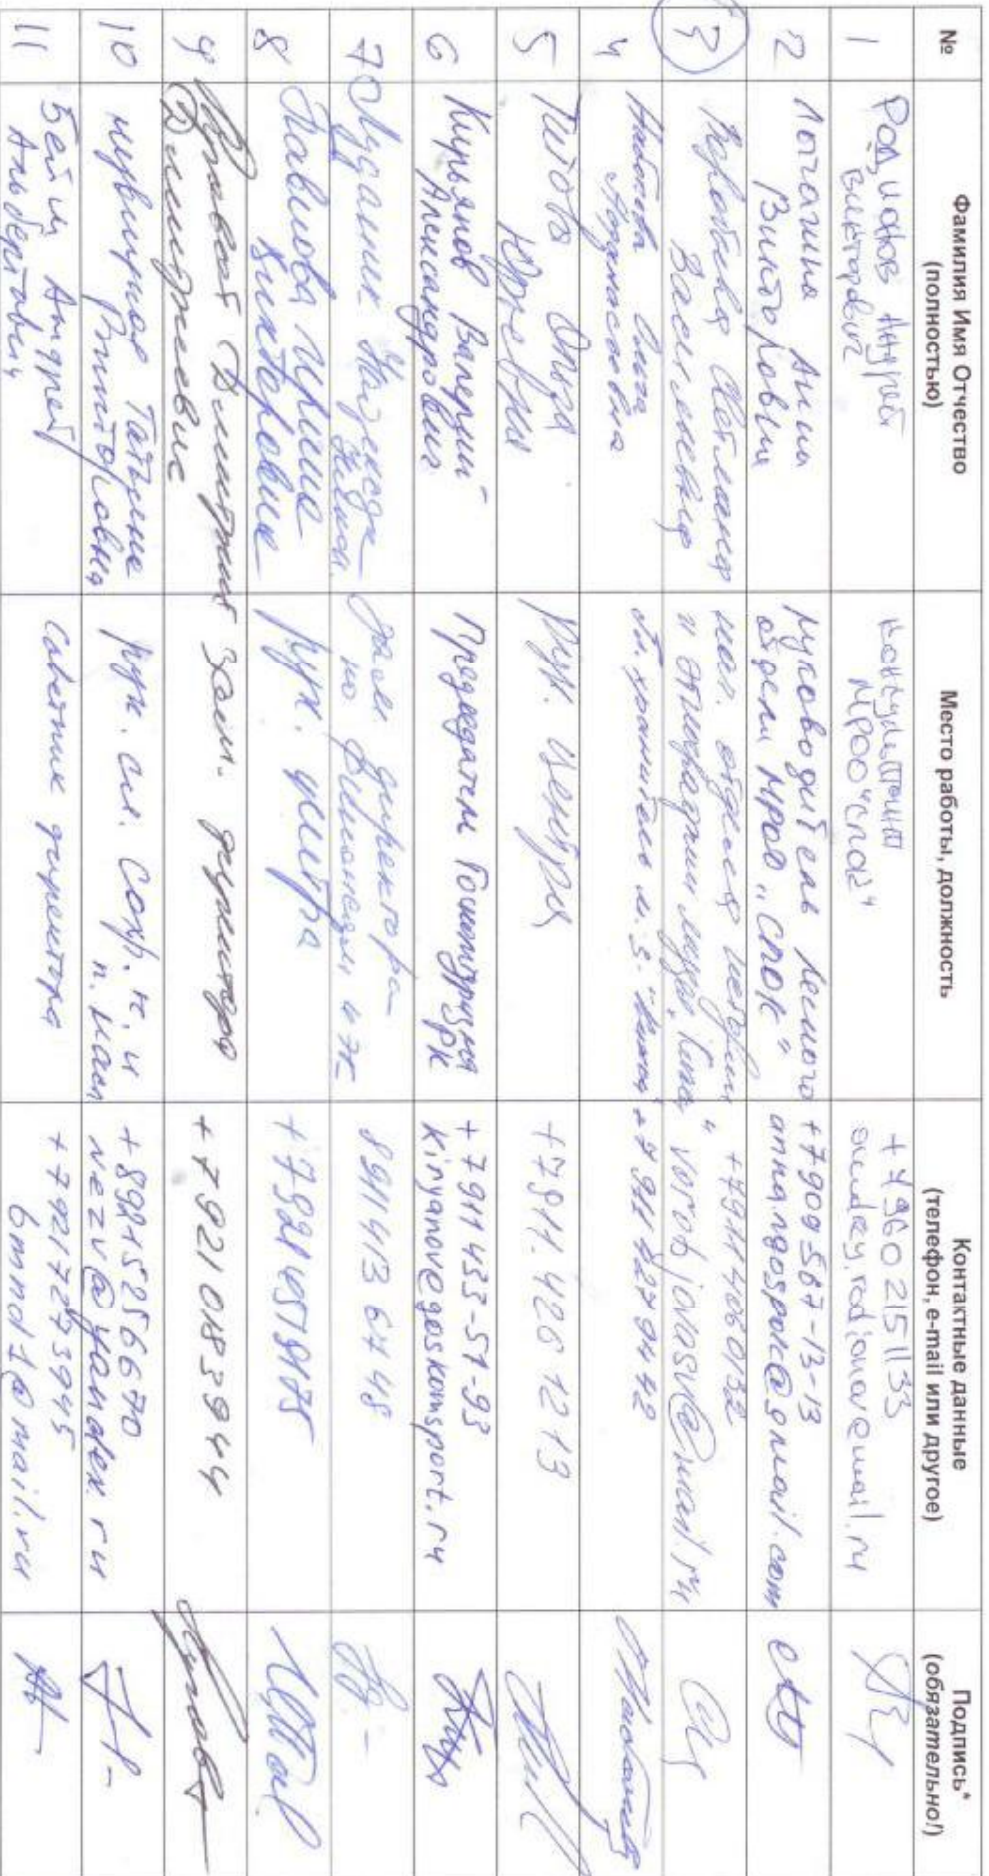 №
Фамилия Имя Отчество
(полностью)
Место работы, должность
Контактные данные
(телефон, e-mail или другое)
Подпись*
(обязательно!)
1
Родионов Андрей
Викторович
консультант
МРОО "СПОК"
+79602151133
andrey.rodionov@mail.ru
2
Логачина Анна
Викторовна
руководитель лесного
отдела МРОО "СПОК"
+7909567-13-13
anna.ngospok@gmail.com
3
Воробьева Светлана
Васильевна
нач. отдела истории
и этнографии музея "Кижи"
+79114060132
vorobjovasv@mail.ru
4
Набокова Ольга
гл. хранитель м.-з. "Кижи"
5
Титова Ольга
Юрьевна
рук. центра
+7911.426 12 13
6
Кирьянов Валерий
Александрович
Председатель Госкомтуризма
РК
+7911 433-51-93
kiryanov@goskomsport.ru
7
Надежда
зам. директора
по
8911413 67 48
8
Павлова Ирина
Викторовна
рук. центра
+79214579175
9
Дмитрий
Дмитриевич
зам. директора
+79210183944
10
Татьяна
рук. сл. сохр. к. и
п. насл
+89215256670
nezv@yandex.ru
11
Бейм Андрей
Альбертович
советник директора
+79217273945
6mmd1@mail.ru